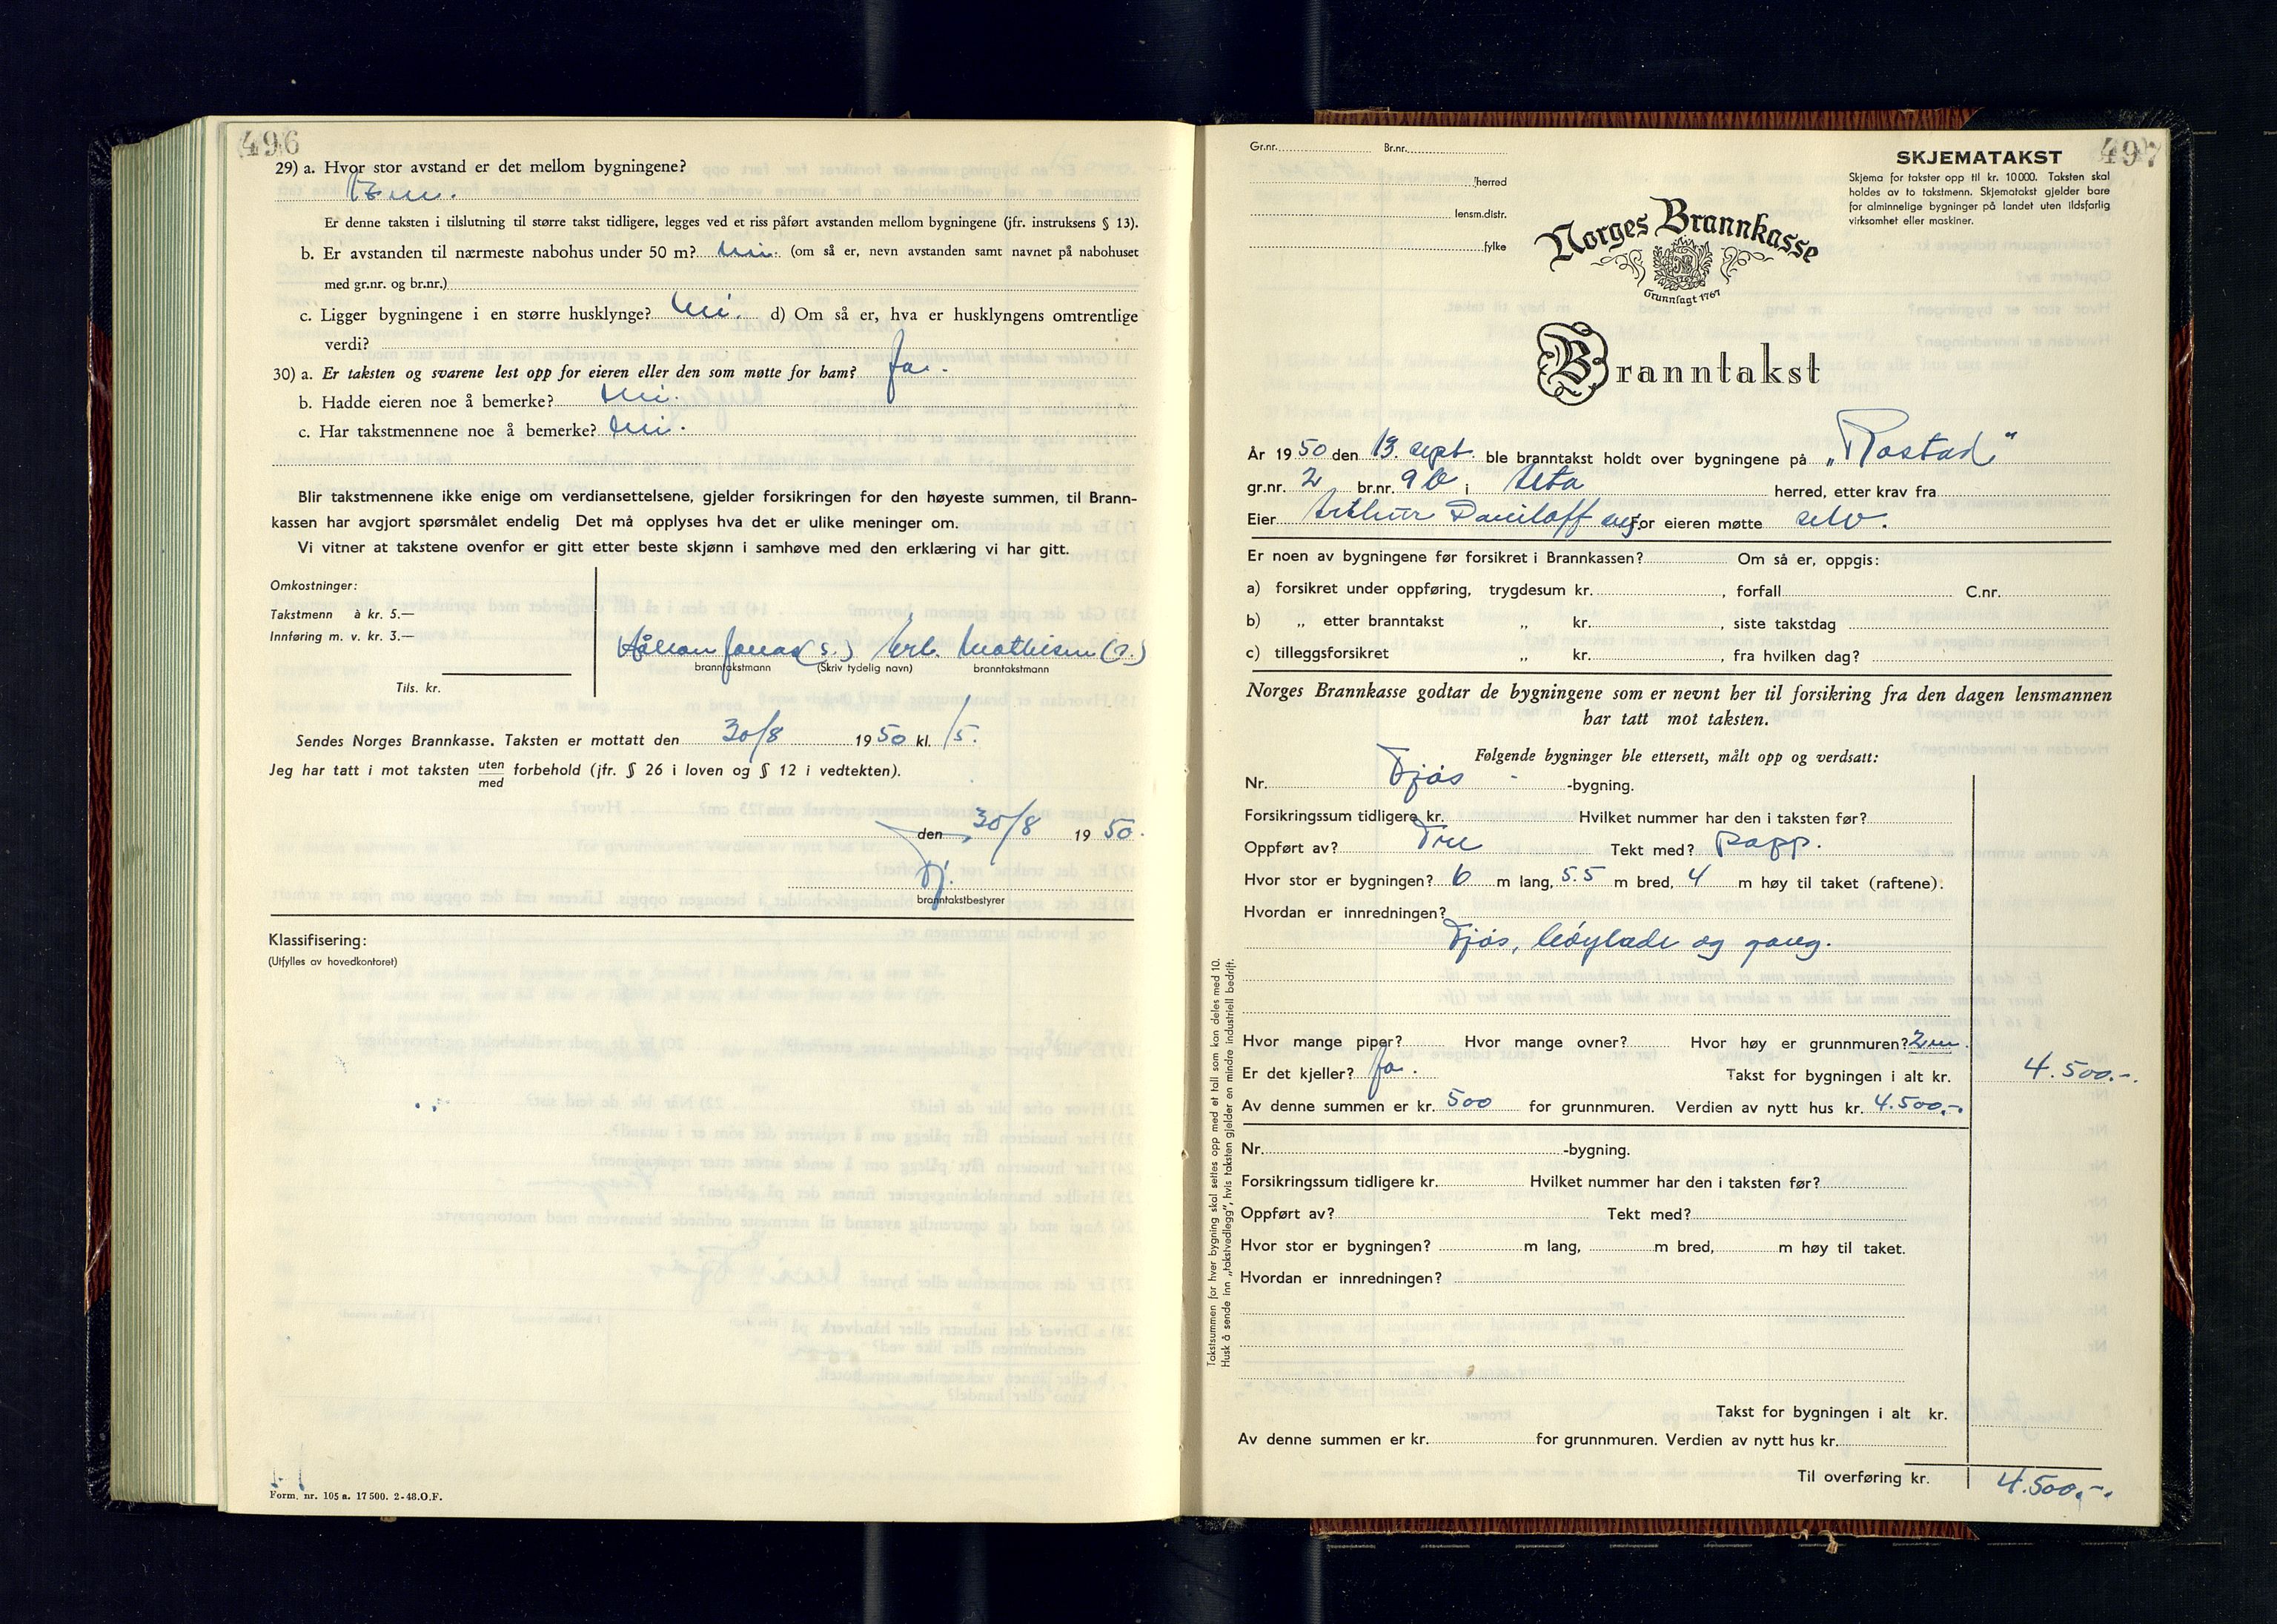 496
29) a. Hvor stor avstand er det mellom bygningene?
Er denne taksten i tilslutning til større takst tidligere, legges ved et riss påført avstanden mellom bygningene (jfr. instruksens § 13).
b. Er avstanden til nærmeste nabohus under 50 m? Nei. (om så er, nevn avstanden samt navnet på nabohuset
med gr.nr. og br.nr.)
c. Ligger bygningene i en større husklynge? Nei. d) Om så er, hva er husklyngens omtrentlige
verdi?
30) a. Er taksten og svarene lest opp for eieren eller den som møtte for ham? Ja.
b. Hadde eieren noe å bemerke? Nei.
c. Har takstmennene noe å bemerke? Nei.
Blir takstmennene ikke enige om verdiansettelsene, gjelder forsikringen for den høyeste summen, til Brann-
kassen har avgjort spørsmålet endelig Det må opplyses hva det er ulike meninger om.
Vi vitner at takstene ovenfor er gitt etter beste skjønn i samhøve med den erklæring vi har gitt.
Omkostninger:
Takstmenn à kr. 5.—
Innføring m. v. kr. 3.—
Håkon Jonas (s.) Mathisen (s.)
branntakstmann (Skriv tydelig navn) branntakstmann
Tils. kr.
Sendes Norges Brannkasse. Taksten er mottatt den 30/8 1950 kl. 15.
Jeg har tatt i mot taksten uten forbehold (jfr. § 26 i loven og § 12 i vedtekten).
med
den 30/8 1950.
branntakstbestyrer
Klassifisering:
(Utfylles av hovedkontoret)
Form. nr. 105 a. 17 500. 2-48.O.F.
497
Gr.nr. Br.nr.
herred
lensm.distr.
fylke
SKJEMATAKST
Skjema for takster opp til kr. 10000. Taksten skal
holdes av to takstmenn. Skjematakst gjelder bare
for alminnelige bygninger på landet uten ildsfarlig
virksomhet eller maskiner.
Norges Brannkasse
Grunnlagt 1767
Branntakst
År 1950 den 13. sept. ble branntakst holdt over bygningene på „Rostad"
gr.nr. 2 br.nr. 90 i Alta herred, etter krav fra
Eier Arthur Daniloff For eieren møtte selv.
Er noen av bygningene før forsikret i Brannkassen? Om så er, oppgis:
a) forsikret under oppføring, trygdesum kr. , forfall C.nr.
b) „ etter branntakst „ kr. , siste takstdag
c) tilleggsforsikret „ kr. , fra hvilken dag?
Norges Brannkasse godtar de bygningene som er nevnt her til forsikring fra den dagen lensmannen
har tatt mot taksten.
Følgende bygninger ble ettersett, målt opp og verdsatt:
Nr. Fjøs -bygning.
Forsikringssum tidligere kr. Hvilket nummer har den i taksten før?
Oppført av? Tre Tekt med? papp.
Hvor stor er bygningen? 6 m lang, 5.5 m bred, 4 m høy til taket (raftene).
Hvordan er innredningen?
Fjøs, høylade og gang.
Hvor mange piper? Hvor mange ovner? Hvor høy er grunnmuren? 2 m.
Er det kjeller? Ja. Takst for bygningen i alt kr. 4.500.-.
Av denne summen er kr. 500 for grunnmuren. Verdien av nytt hus kr. 4.500.-
Nr. -bygning.
Forsikringssum tidligere kr. Hvilket nummer har den i taksten før?
Oppført av? Tekt med?
Hvor stor er bygningen? m lang, m bred, m høy til taket.
Hvordan er innredningen?
Takst for bygningen i alt kr.
Av denne summen er kr. for grunnmuren. Verdien av nytt hus kr.
Til overføring kr. 4.500.-.
Takstsummen for hver bygning skal settes opp med et tall som kan deles med 10.
Husk å sende inn „takstvedlegg", hvis taksten gjelder en mindre industriell bedrift.